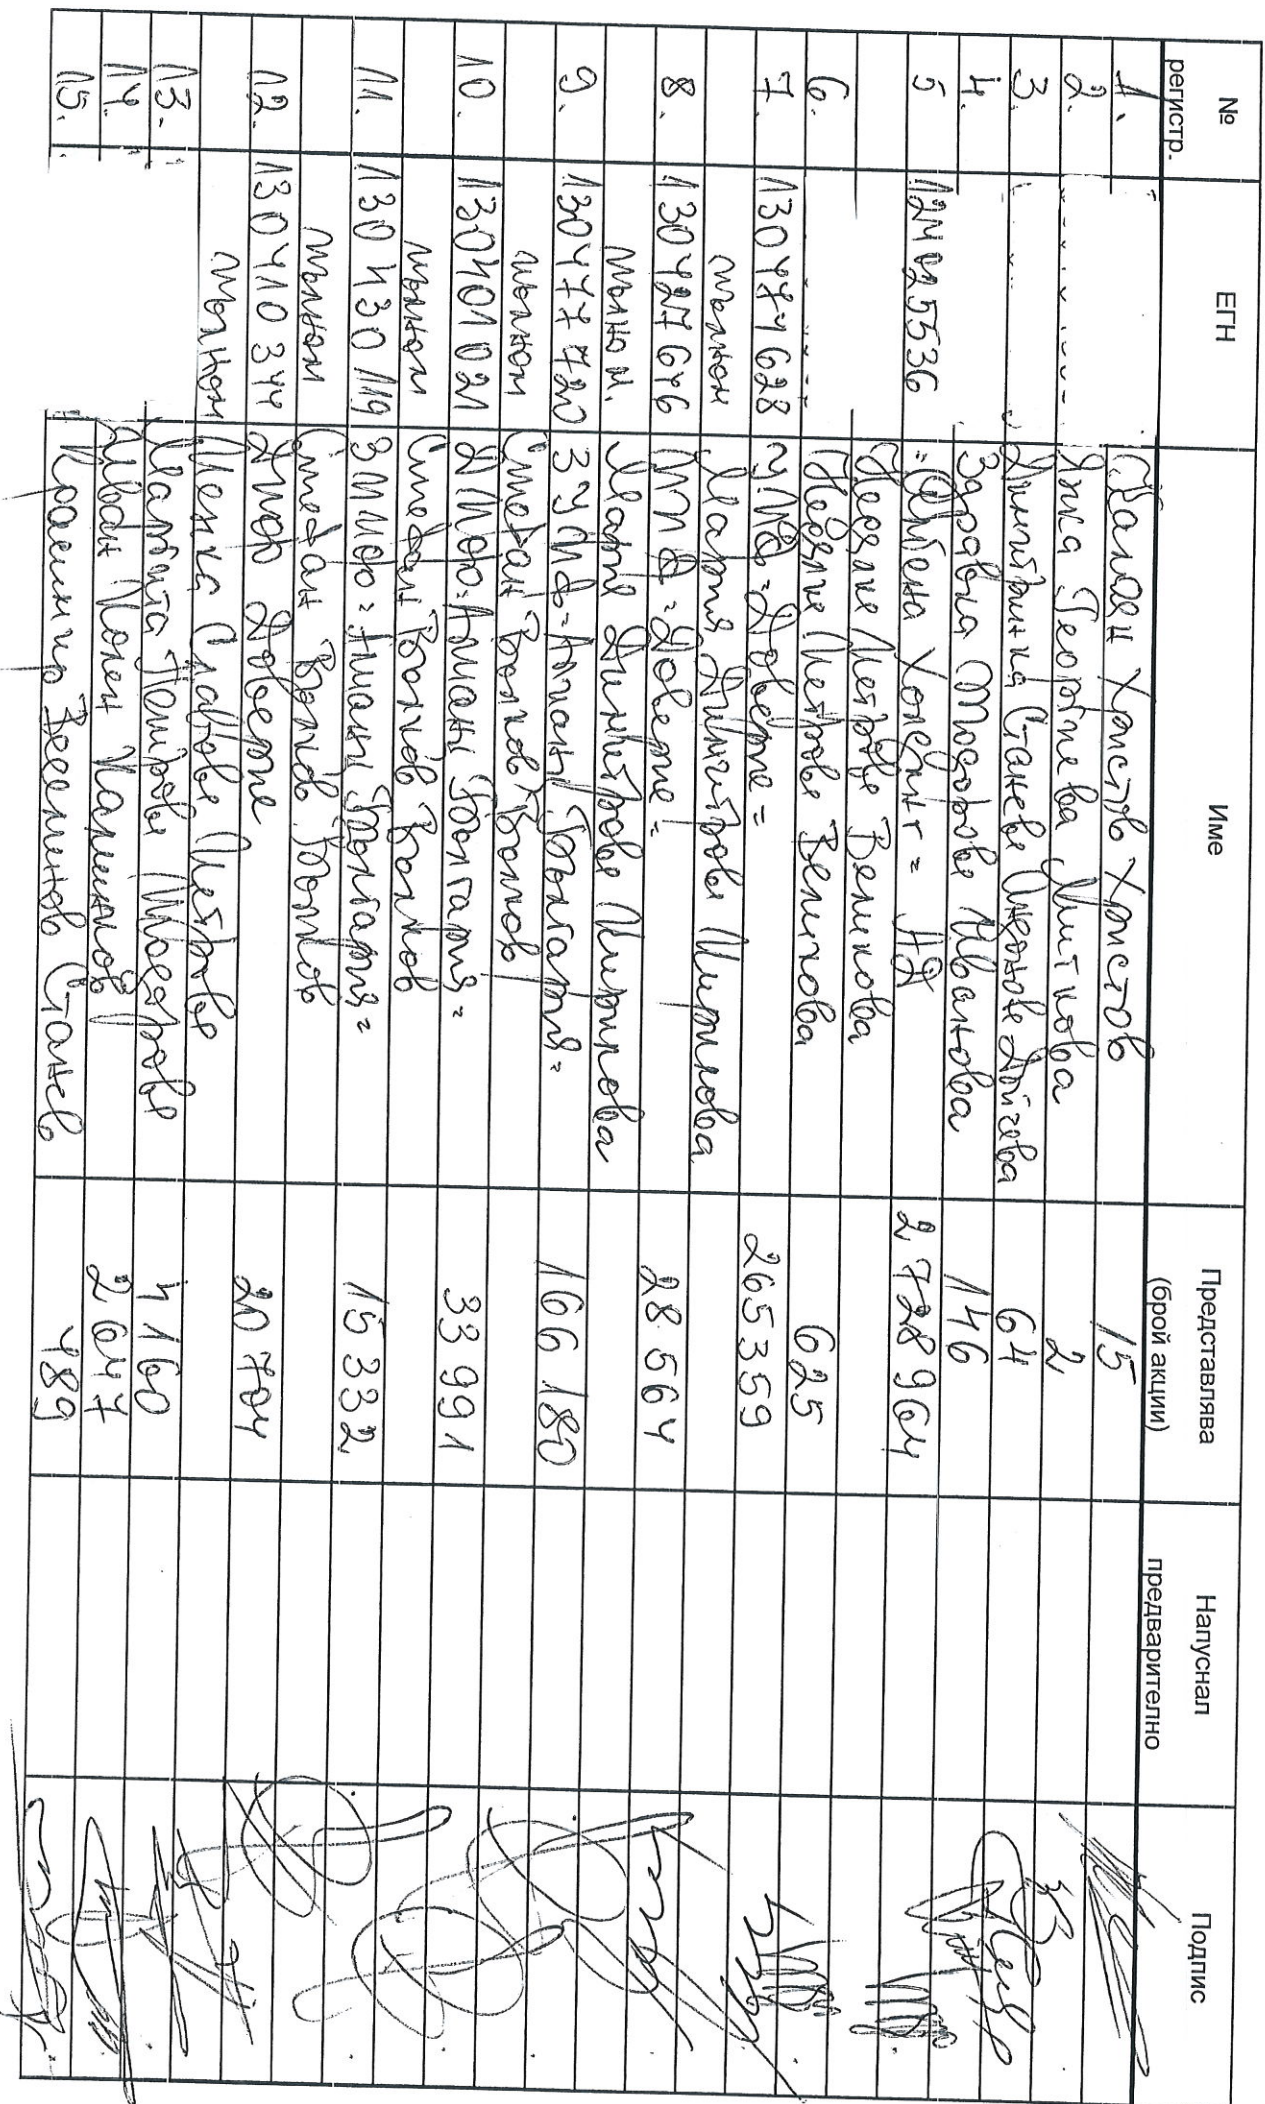 № регистр. ЕГН Име Представлява (брой акции) Напуснал предварително Подпис
1. Калоян Христов Христов 15
2. Янка Георгиева Миткова 2
3. Димитринка Станева Дойчева 64
4. Здравка Тодорова Иванова 146
5 124025536 = Албена Холдинг = АД 2728964
Недялка Петрова Великова
6. Недялка Петрова Великова 625
7. 130477628 УПФ = Доверие = 265359
пълном Мария Димитрова
8. 130427646 ППФ = Доверие = 28564
пълном. Мария Димитрова
9. 130477720 ЗУПФ = Алианц България = 166180
пълном Стефан Вълков Вълков
10. 130401021 ДПФ = Алианц България = 33991
пълном Стефан Вълков Вълков
11. 130430119 ЗППФ = Алианц България = 15332
пълном Стефан Вълков Вълков
12. 130410344 ДПФ Доверие 20704
пълном Пенка Славова Петрова
13. Петрова Тодорова 4160
14. Иван Колев Калинков 2647
15. Красимир Веселинов Станев 489